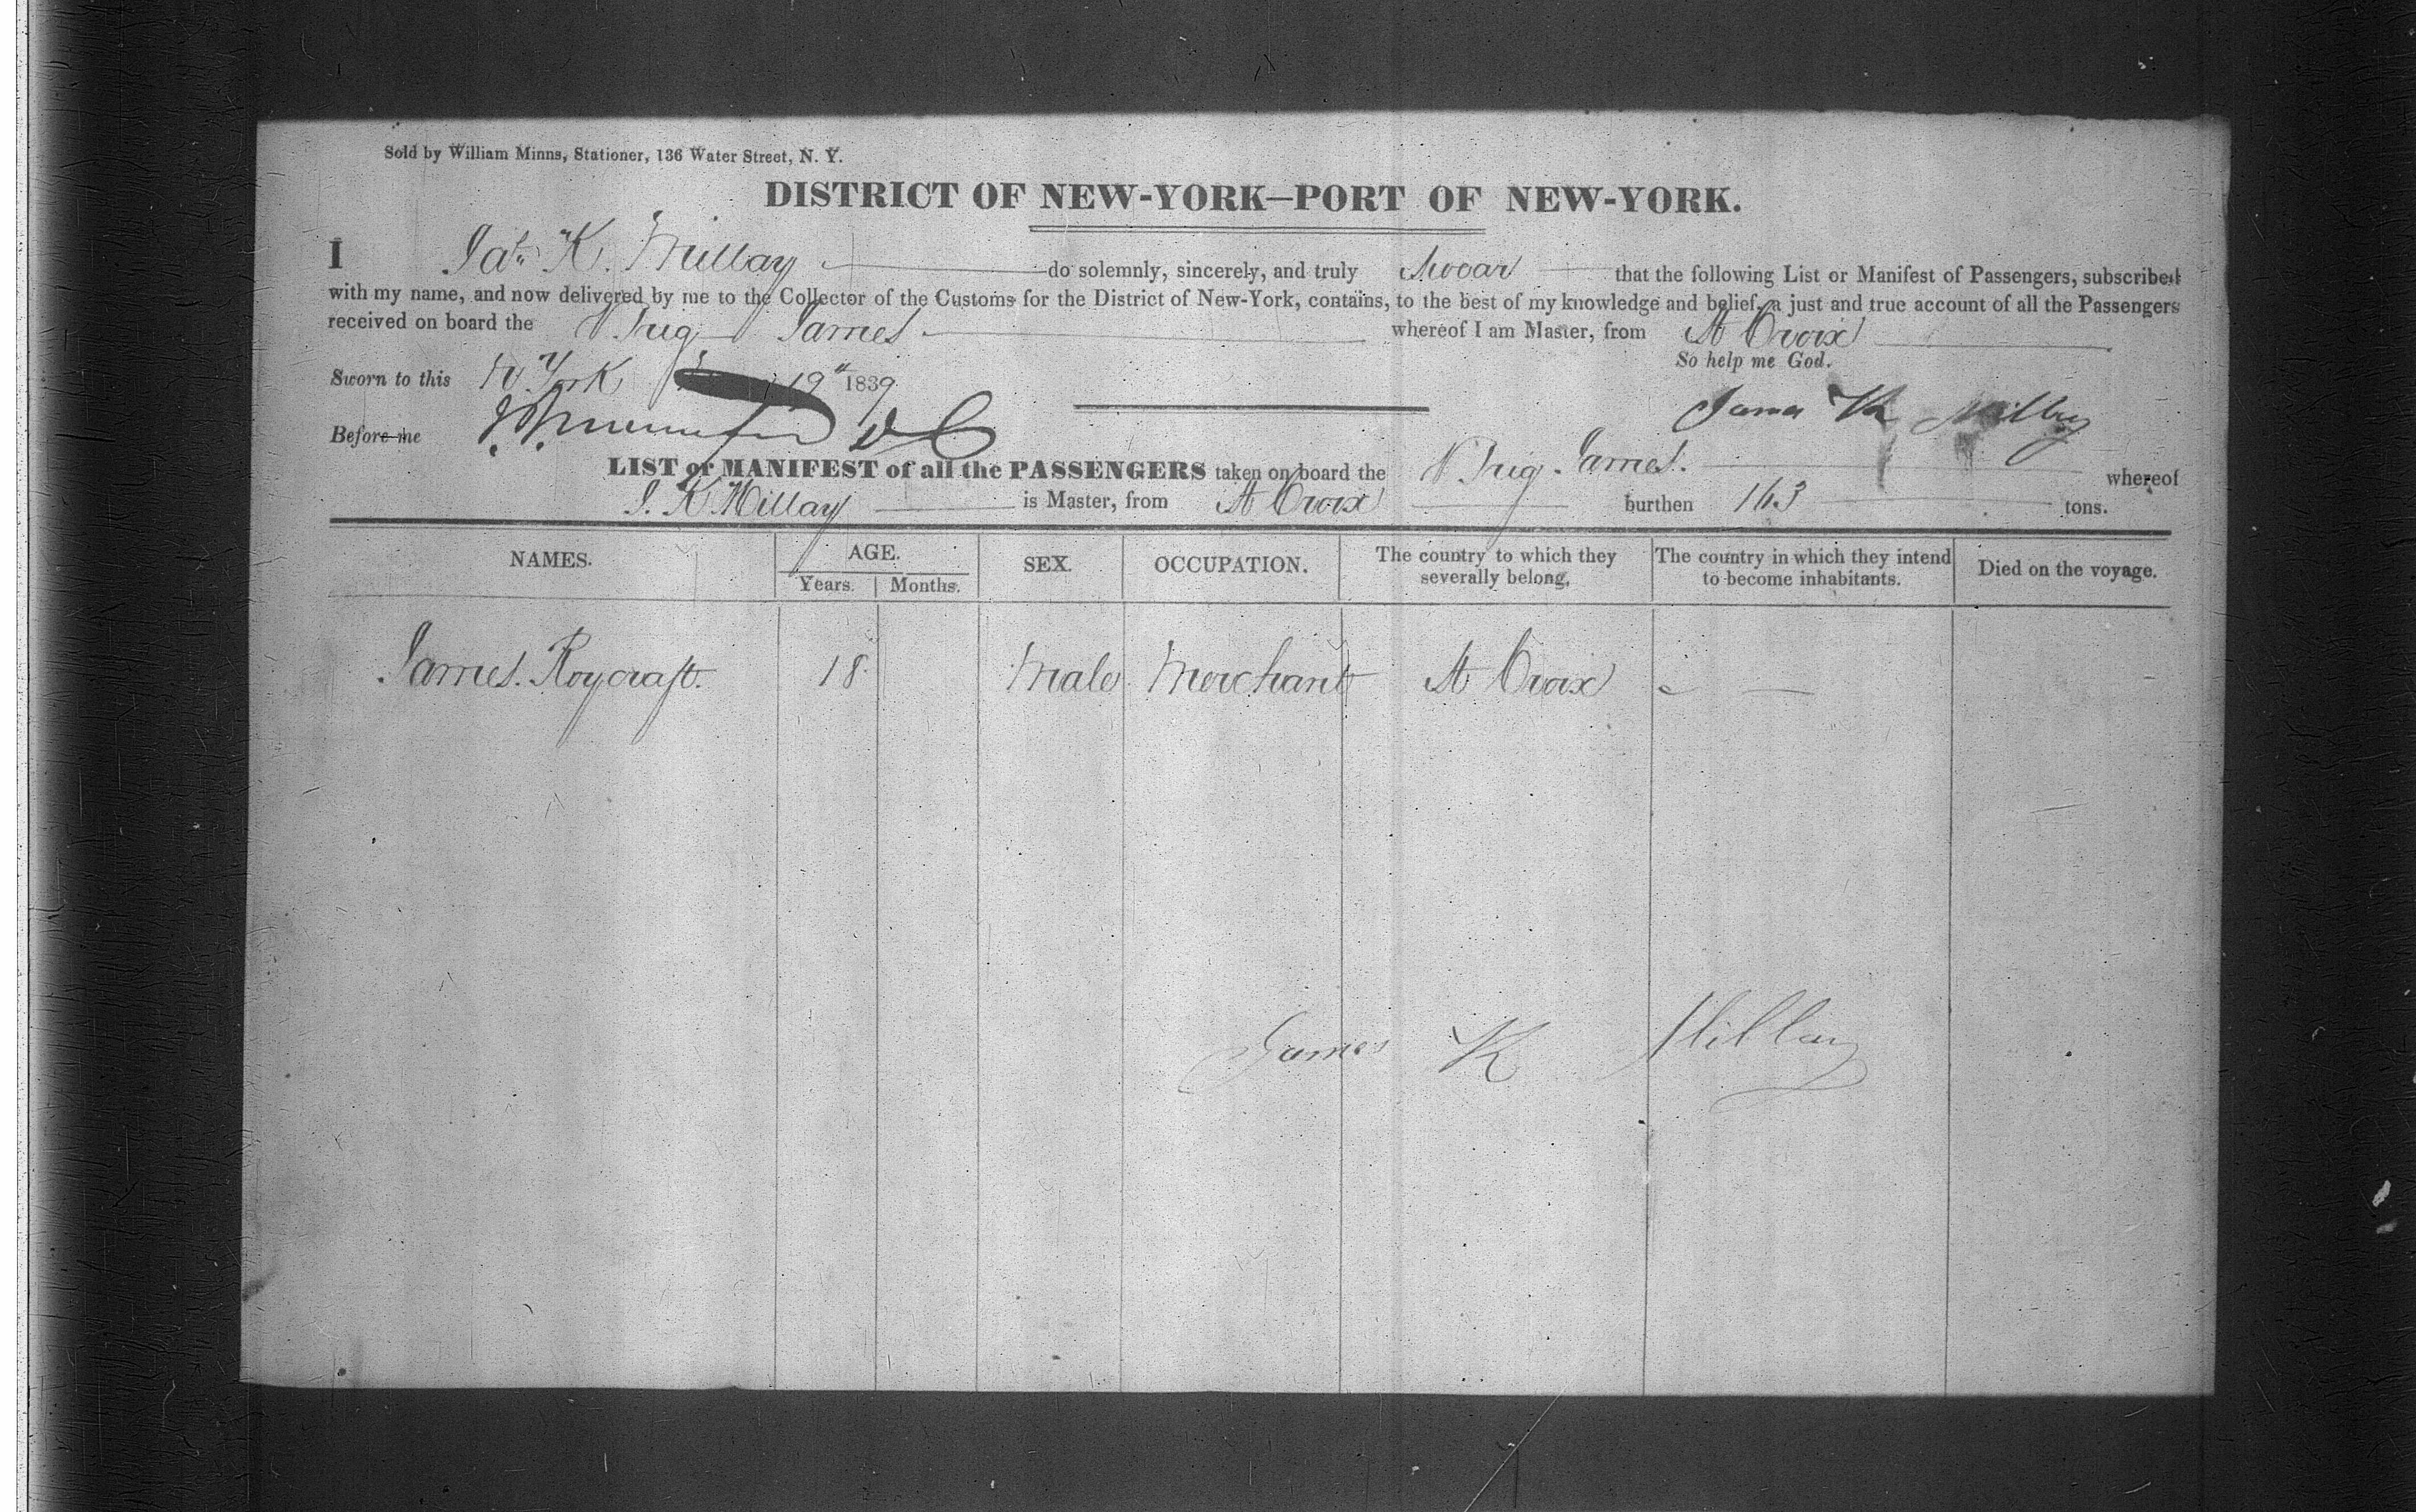 Sold by William Minns, Stationer, 136 Water Street, N. Y.
DISTRICT OF NEW-YORK—PORT OF NEW-YORK.
I Jas. K. Millay do solemnly, sincerely, and truly Swear that the following List or Manifest of Passengers, subscribed
with my name, and now delivered by me to the Collector of the Customs for the District of New-York, contains, to the best of my knowledge and belief, a just and true account of all the Passengers
received on board the Brig James whereof I am Master, from St Croix
So help me God.
Sworn to this N York 19th 1839
James K Millay
Before me
LIST or MANIFEST of all the PASSENGERS taken on board the Brig James. whereof
J. K Millay is Master, from St Croix burthen 163 tons.
NAMES. AGE. SEX. OCCUPATION. The country to which they severally belong, The country in which they intend to become inhabitants. Died on the voyage.
Years. Months.
James. Roycraft. 18 Male Merchant St Croix
James K Millay